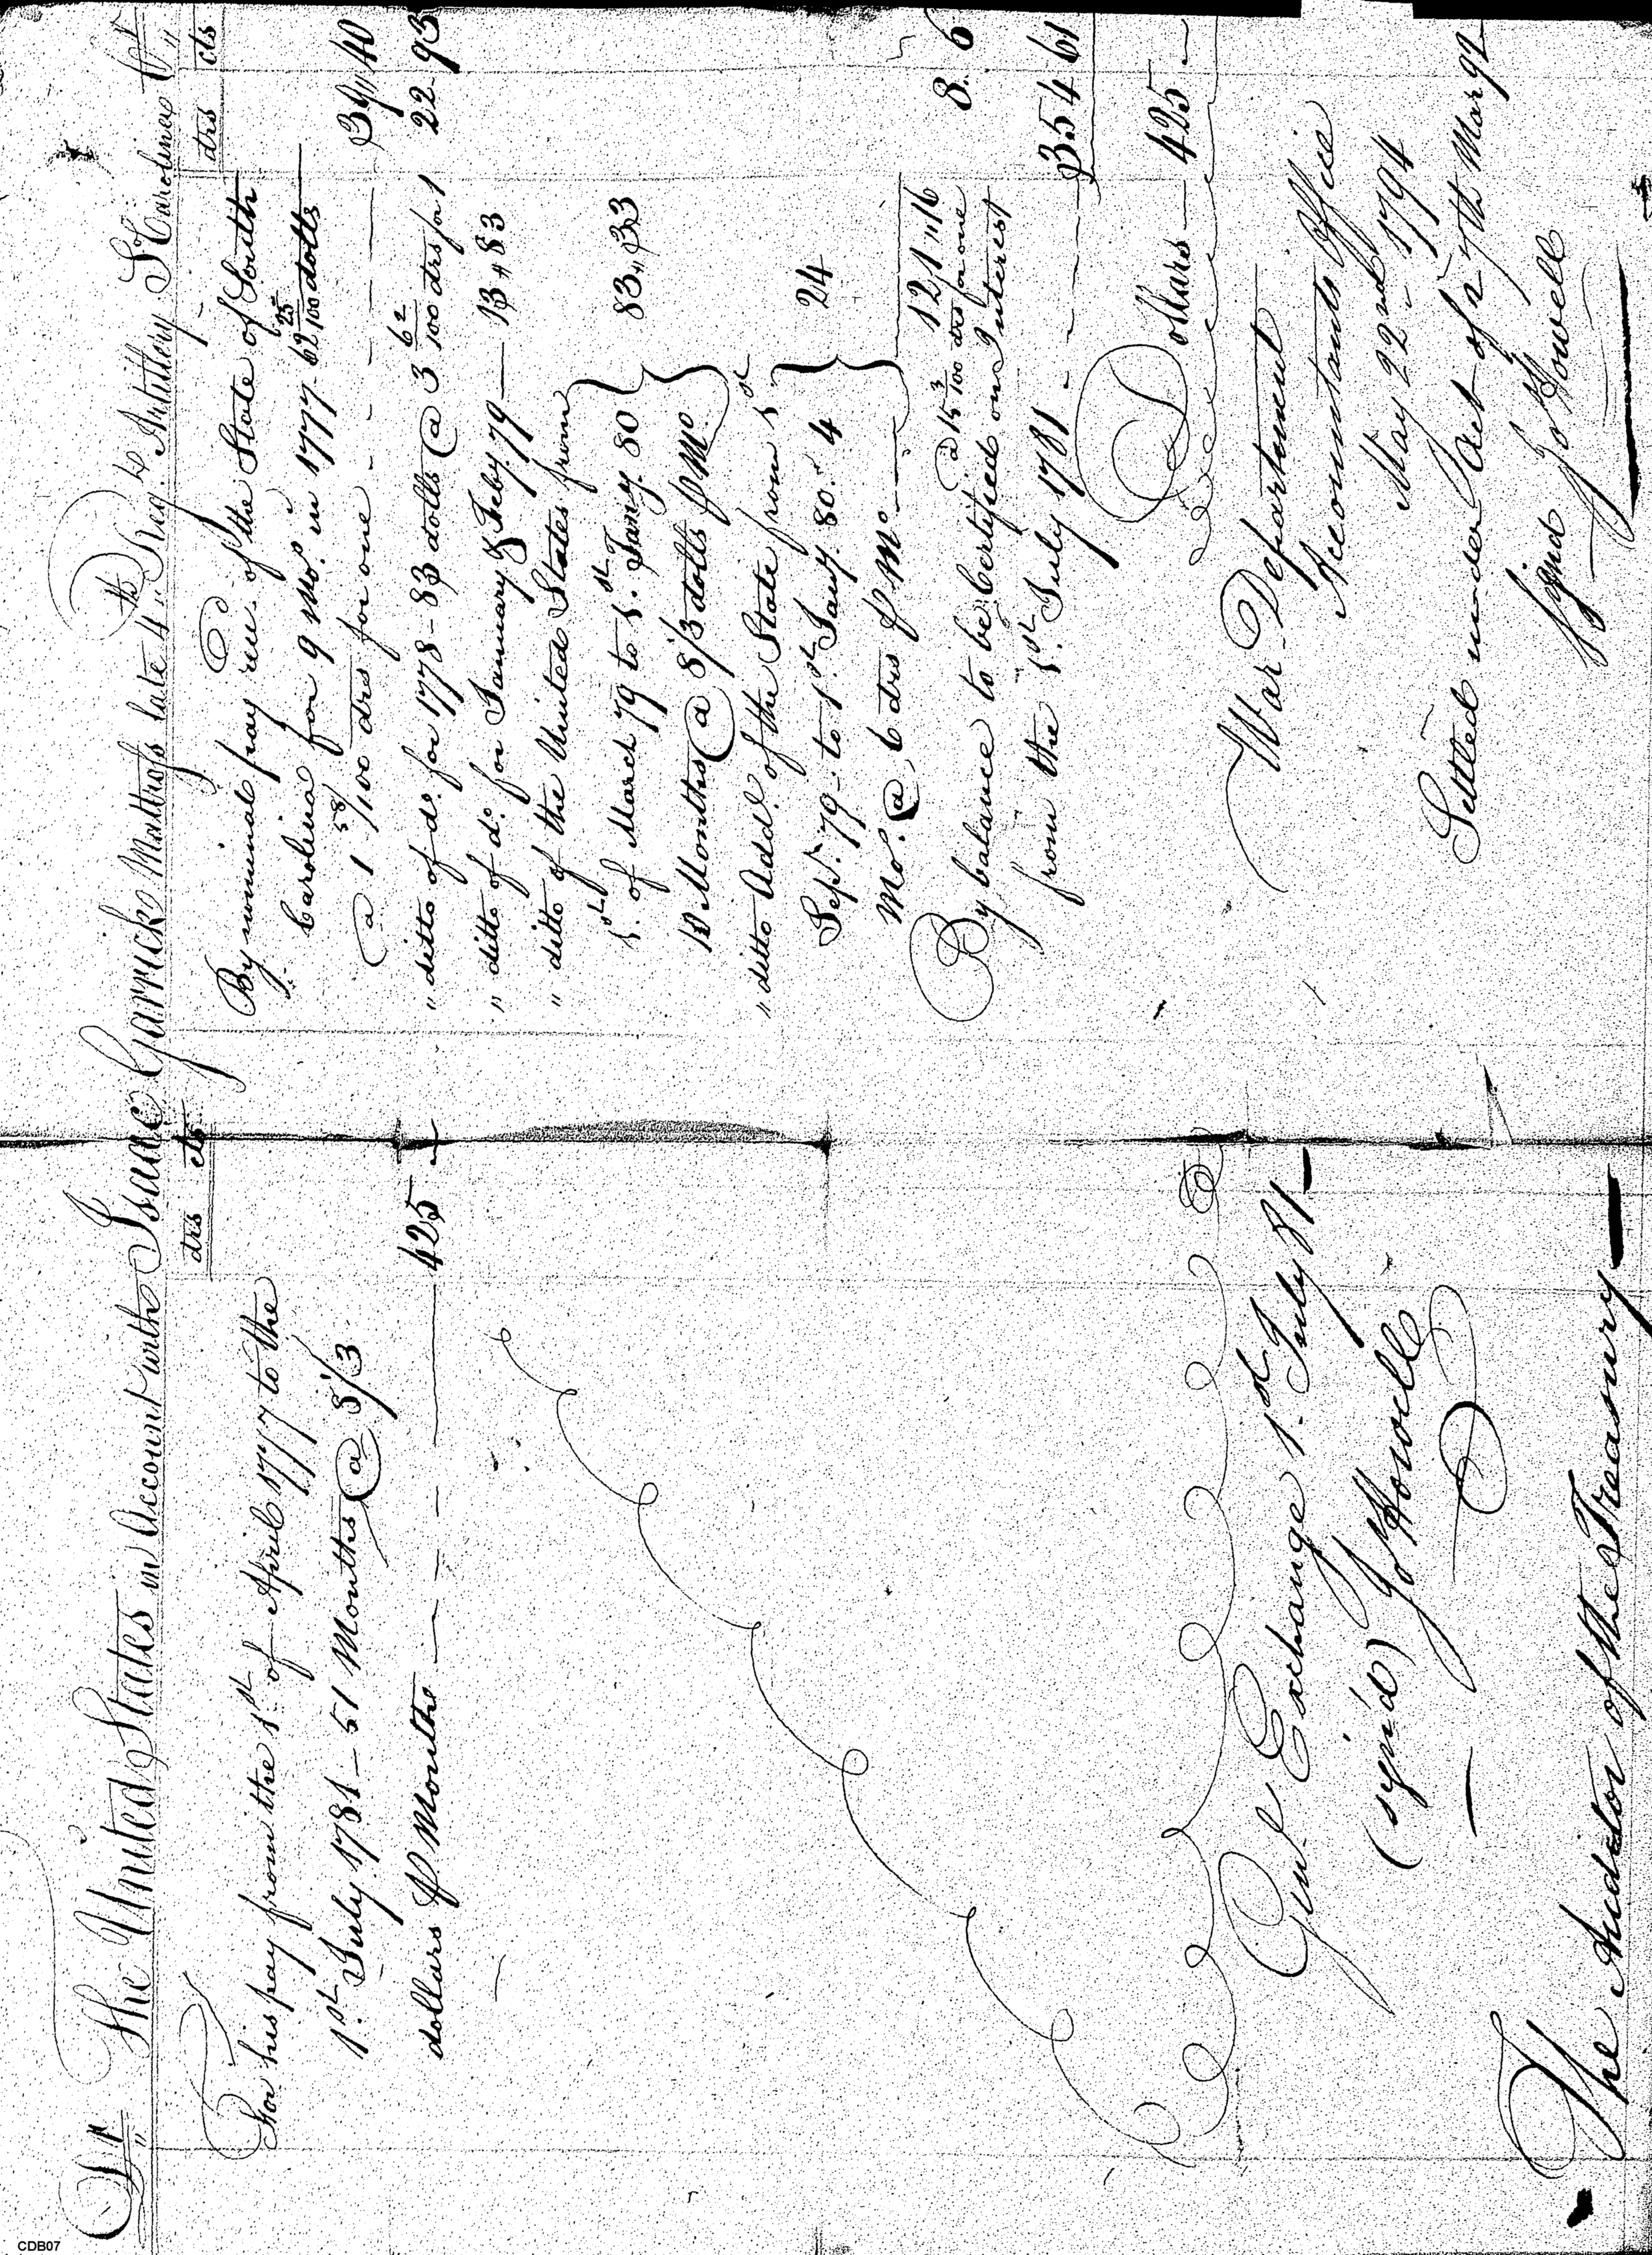 Dr The United States in Account with Isaac Garrick Matross late 4th Regt. Artillery So. Carolina Cr
drs cts
For his pay from the 1st. of April 1777 to the
1st. July 1781 – 51 Months @ 8 1/3
dollars P Month — 425 —
Exchange 1st. July 81 —
(sign'd) Jo Howell
The Auditor of the Treasury —
drs cts
By nominal pay rec of the State of South
Carolina for 9 Mos. in 1777. 62 25/100 dolls
@ 1 58/100 drs for one — 39 " 40
" ditto of do. for 1778 – 83 dolls @ 3 62/100 drs for 1 22 " 93
" ditto of do. for January & Feby. 79 — 13 " 83
" ditto of the United States from
1st. of March 79 to 1st. Jany. 80
10 Months @ 8 1/3 dolls P Mo. 83 " 33
" ditto Addl. of the State from 1st
Sept. 79 – to 1st. Jany. 80. 4
Mo. @ 6 drs P Mo — 24
121 " 16
@ 15 3/100 drs for one 8. 6
By balance to be Certified on Interest
from the 1st. July 1781 . — 354 61
Dollars — 425 —
War Department
Accountants Office
May 22nd 1794
Settled under Act of 27th Mar 92
Signd Jo Howell
CDB07